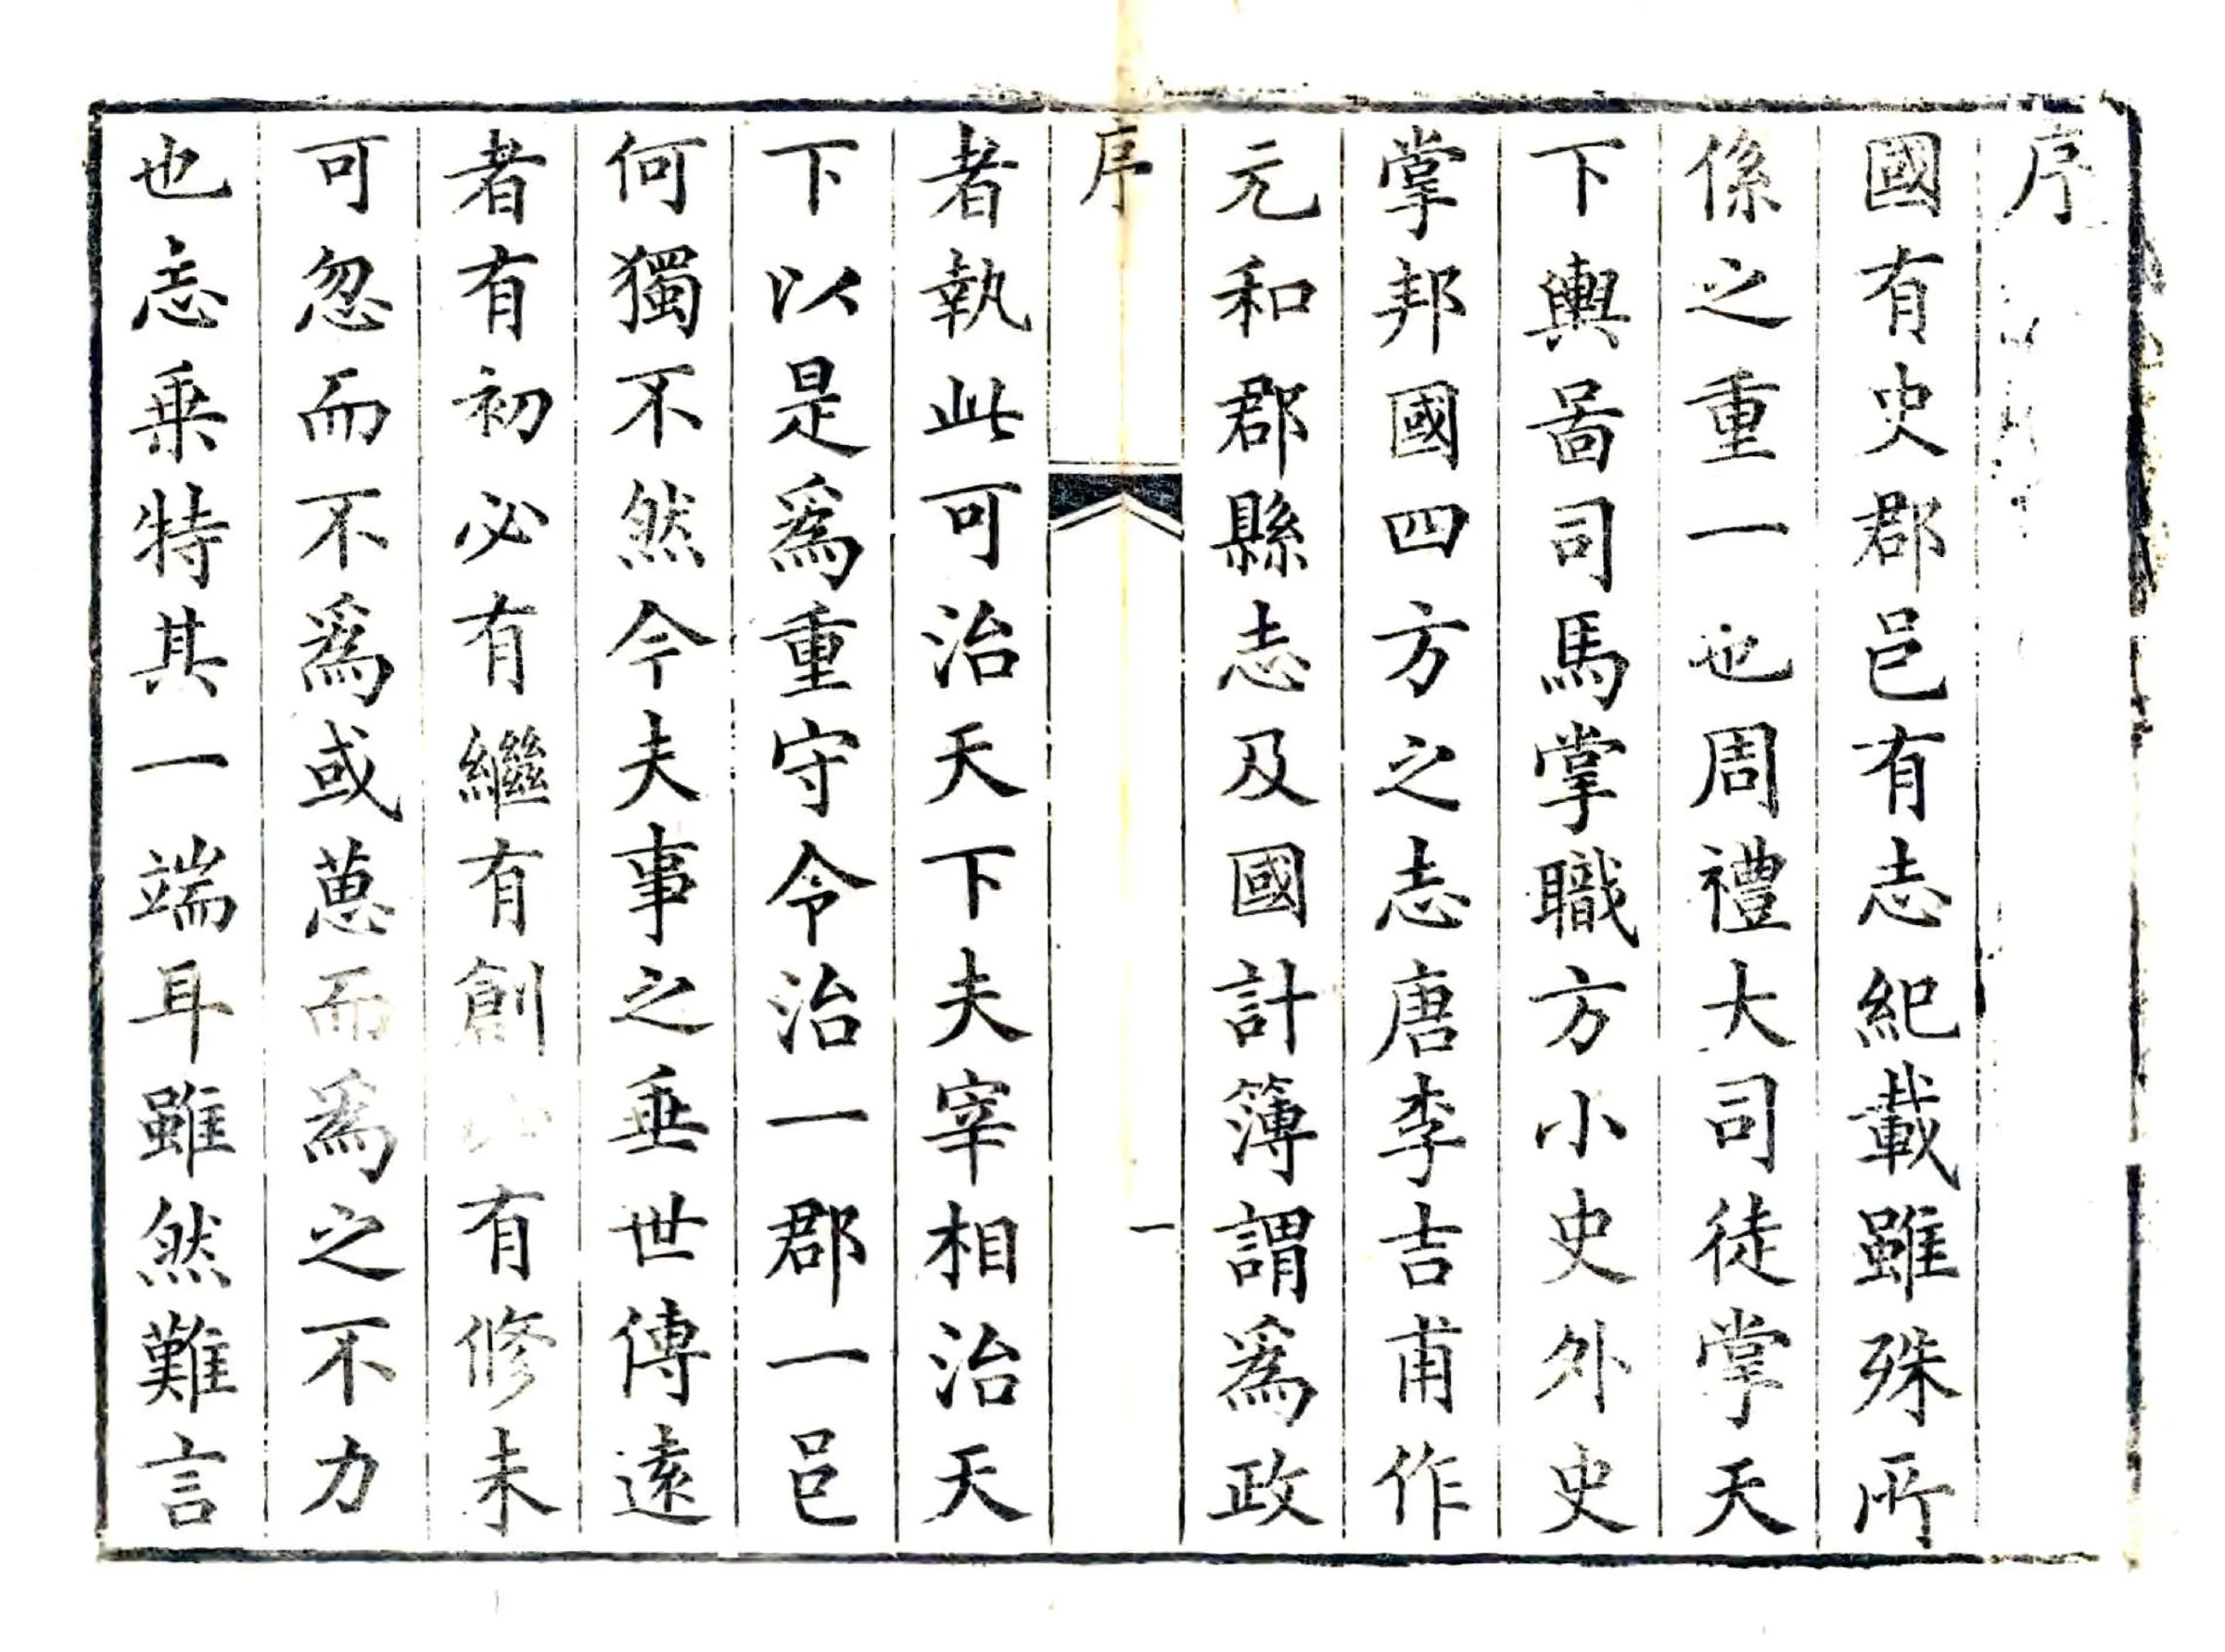 序
國有史郡邑有志紀載雖殊所
係之重一也周禮大司徒掌天
下輿啚司馬掌職方小史外史
掌邦國四方之志唐李吉甫作
元和郡縣志及國計簿謂爲政
序
一
者執此可治天下夫宰相治天
下以是爲重守令治一郡一邑
何獨不然今夫事之垂世傳逺
者有初必有繼有創必有修未
可忽而不爲或葸而爲之不力
也志乗特其一端耳雖然難言